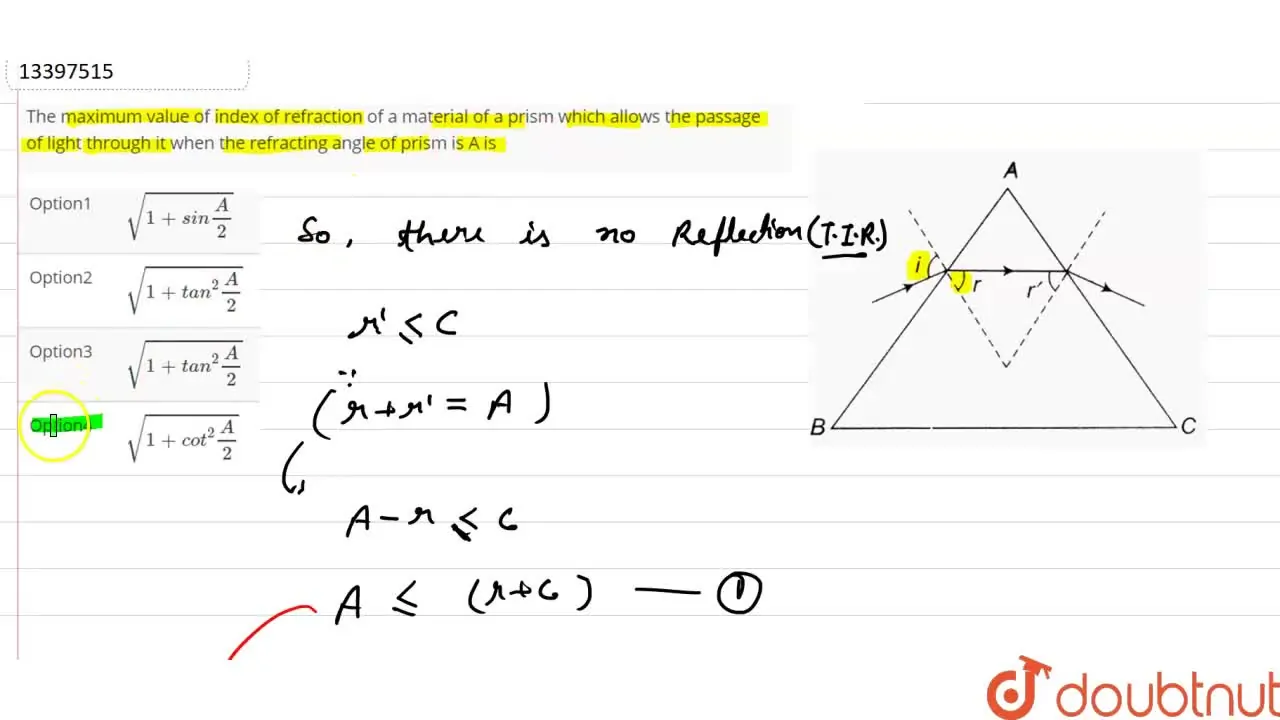 13397515
The maximum value of index of refraction of a material of a prism which allows the passage
of light through it when the refracting angle of prism is A is
Option1 √(1 + sin A/2)
Option2 √(1 + tan² A/2)
Option3 √(1 + tan² A/2)
Option √(1 + cot² A/2)
So, there is no Reflection (T.I.R.)
r' ≤ C
∵
(r + r' = A)
A - r ≤ C
A ≤ (r + C) — ①
A
i
r
r'
B
C
doubtnut